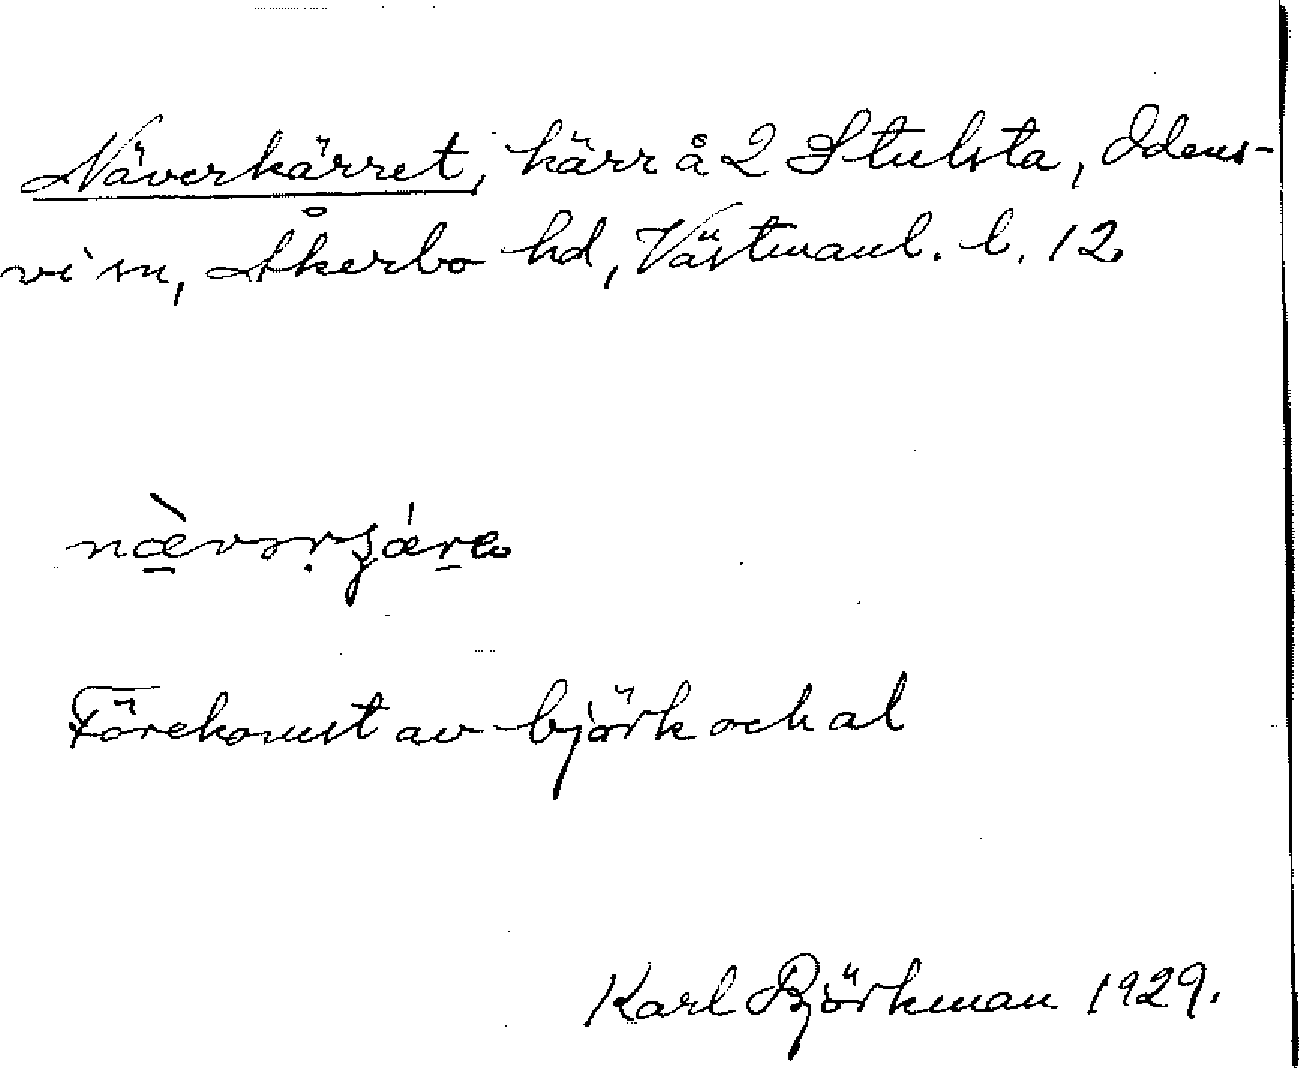 Näverkärret, kärr å 2 Stulsta, Odens-
vi sn, Åkerbo hd, Västmanl. l. 12
nævərʂære
Förekomst av björk och al
Karl Björkman 1929.